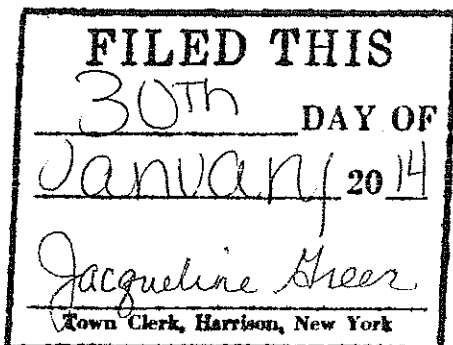 FILED THIS
30Th DAY OF
January 2014
Jacqueline Greer
Town Clerk, Harrison, New York